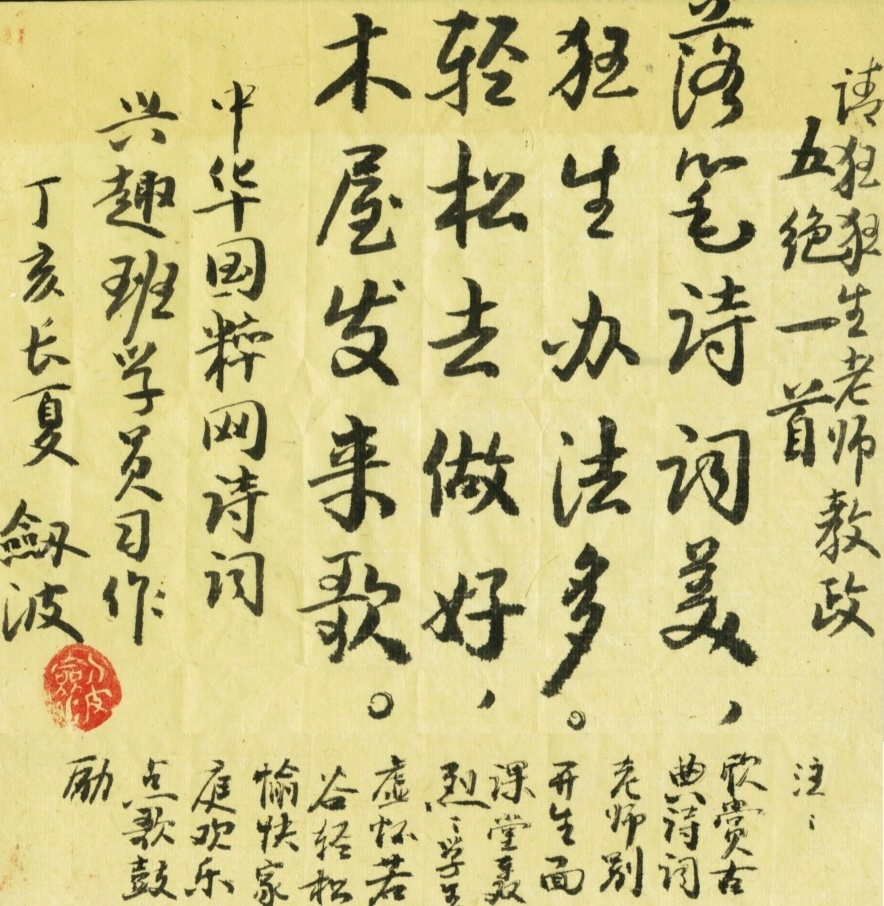 请狂狂生老师教政
五绝一首
落笔诗词美，
狂生办法多。
轻松去做好，
木屋发来歌。
中华国粹网诗词
兴趣班学员习作：
丁亥长夏 劔波
注：
欣赏古
典诗词
老师别
开生面
课堂轰
烈：学生
虚怀若
谷轻松
愉快家
庭欢乐
点歌鼓
励